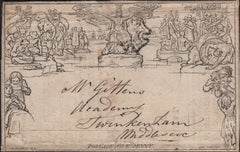 Mr Gittens
Academy
Twickenham
Middlesex
POSTAGE ONE PENNY